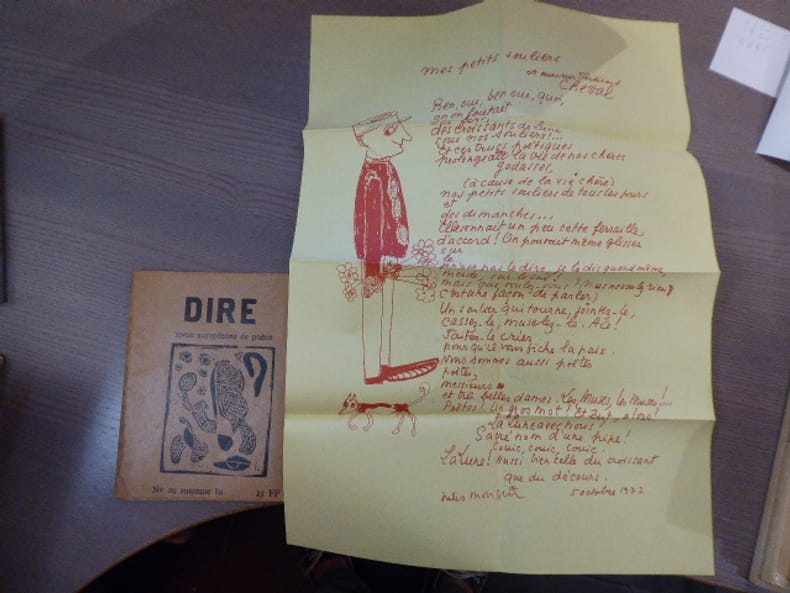 DIRE
revue européenne de poésie
No 29 automne
25 FF
mes petits souliers
à monsieur Ferdinand
Cheval
Ben, oui, ben oui, quoi,
on en foutait
des croissants de lune
sous nos souliers!...
Et ces trucs poétiques
prolongeait la vie de nos chères
godasses,
(à cause de la vie chère)
nos petits souliers de tous les jours
et
des dimanches...
Elle sonnait un peu cette ferraille,
d'accord! On pouvait même glisser
sur
le
pas le dire, je le dis quand même,
merde, sur
mais que voulez-vous?
(C'est une façon de parler)
Un soulier qui tourne,
cassez-le, muselez-le. Aïe!
le crier
pour qu'il vous fiche la paix.
Nous sommes aussi poètes
poètes,
messieurs
et très belles dames. Les Muses, les Muses!...
Poètes! Un gros mot! Et Zut, alors!
La Lune avec nous!
Sacré nom d'une pipe!
Couic, couic, couic.
La Lune! Aussi bien celle du croissant
que du décours.
5 octobre 1972